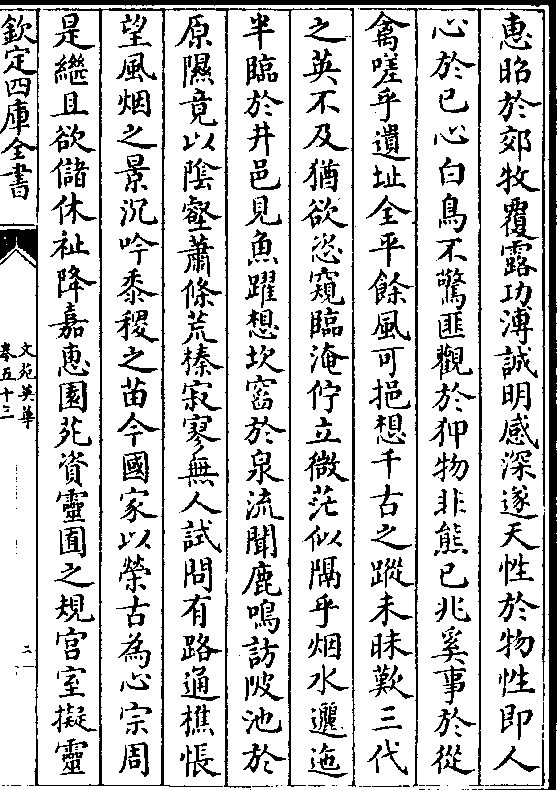 惠昭於郊牧覆露功溥誠明感深遂天性於物性即人
心於已心白鳥不驚匪觀於狎物非熊已兆奚事於從
禽嗟乎遺址全平餘風可挹想千古之蹤未昧歎三代
之英不及猶欲恣窺臨淹佇立微茫似隔乎烟水邐迤
半臨於井邑見魚躍想坎窞於泉流聞鹿鳴訪陂池於
原隰竟以陰壑蕭條荒榛寂寥無人試問有路通樵悵
望風烟之景沉吟黍稷之苗今國家以榮古為心宗周
是繼且欲儲休祉降嘉惠園苑資靈囿之規宫室擬靈
欽定四庫全書
文苑英華
卷五十三
二